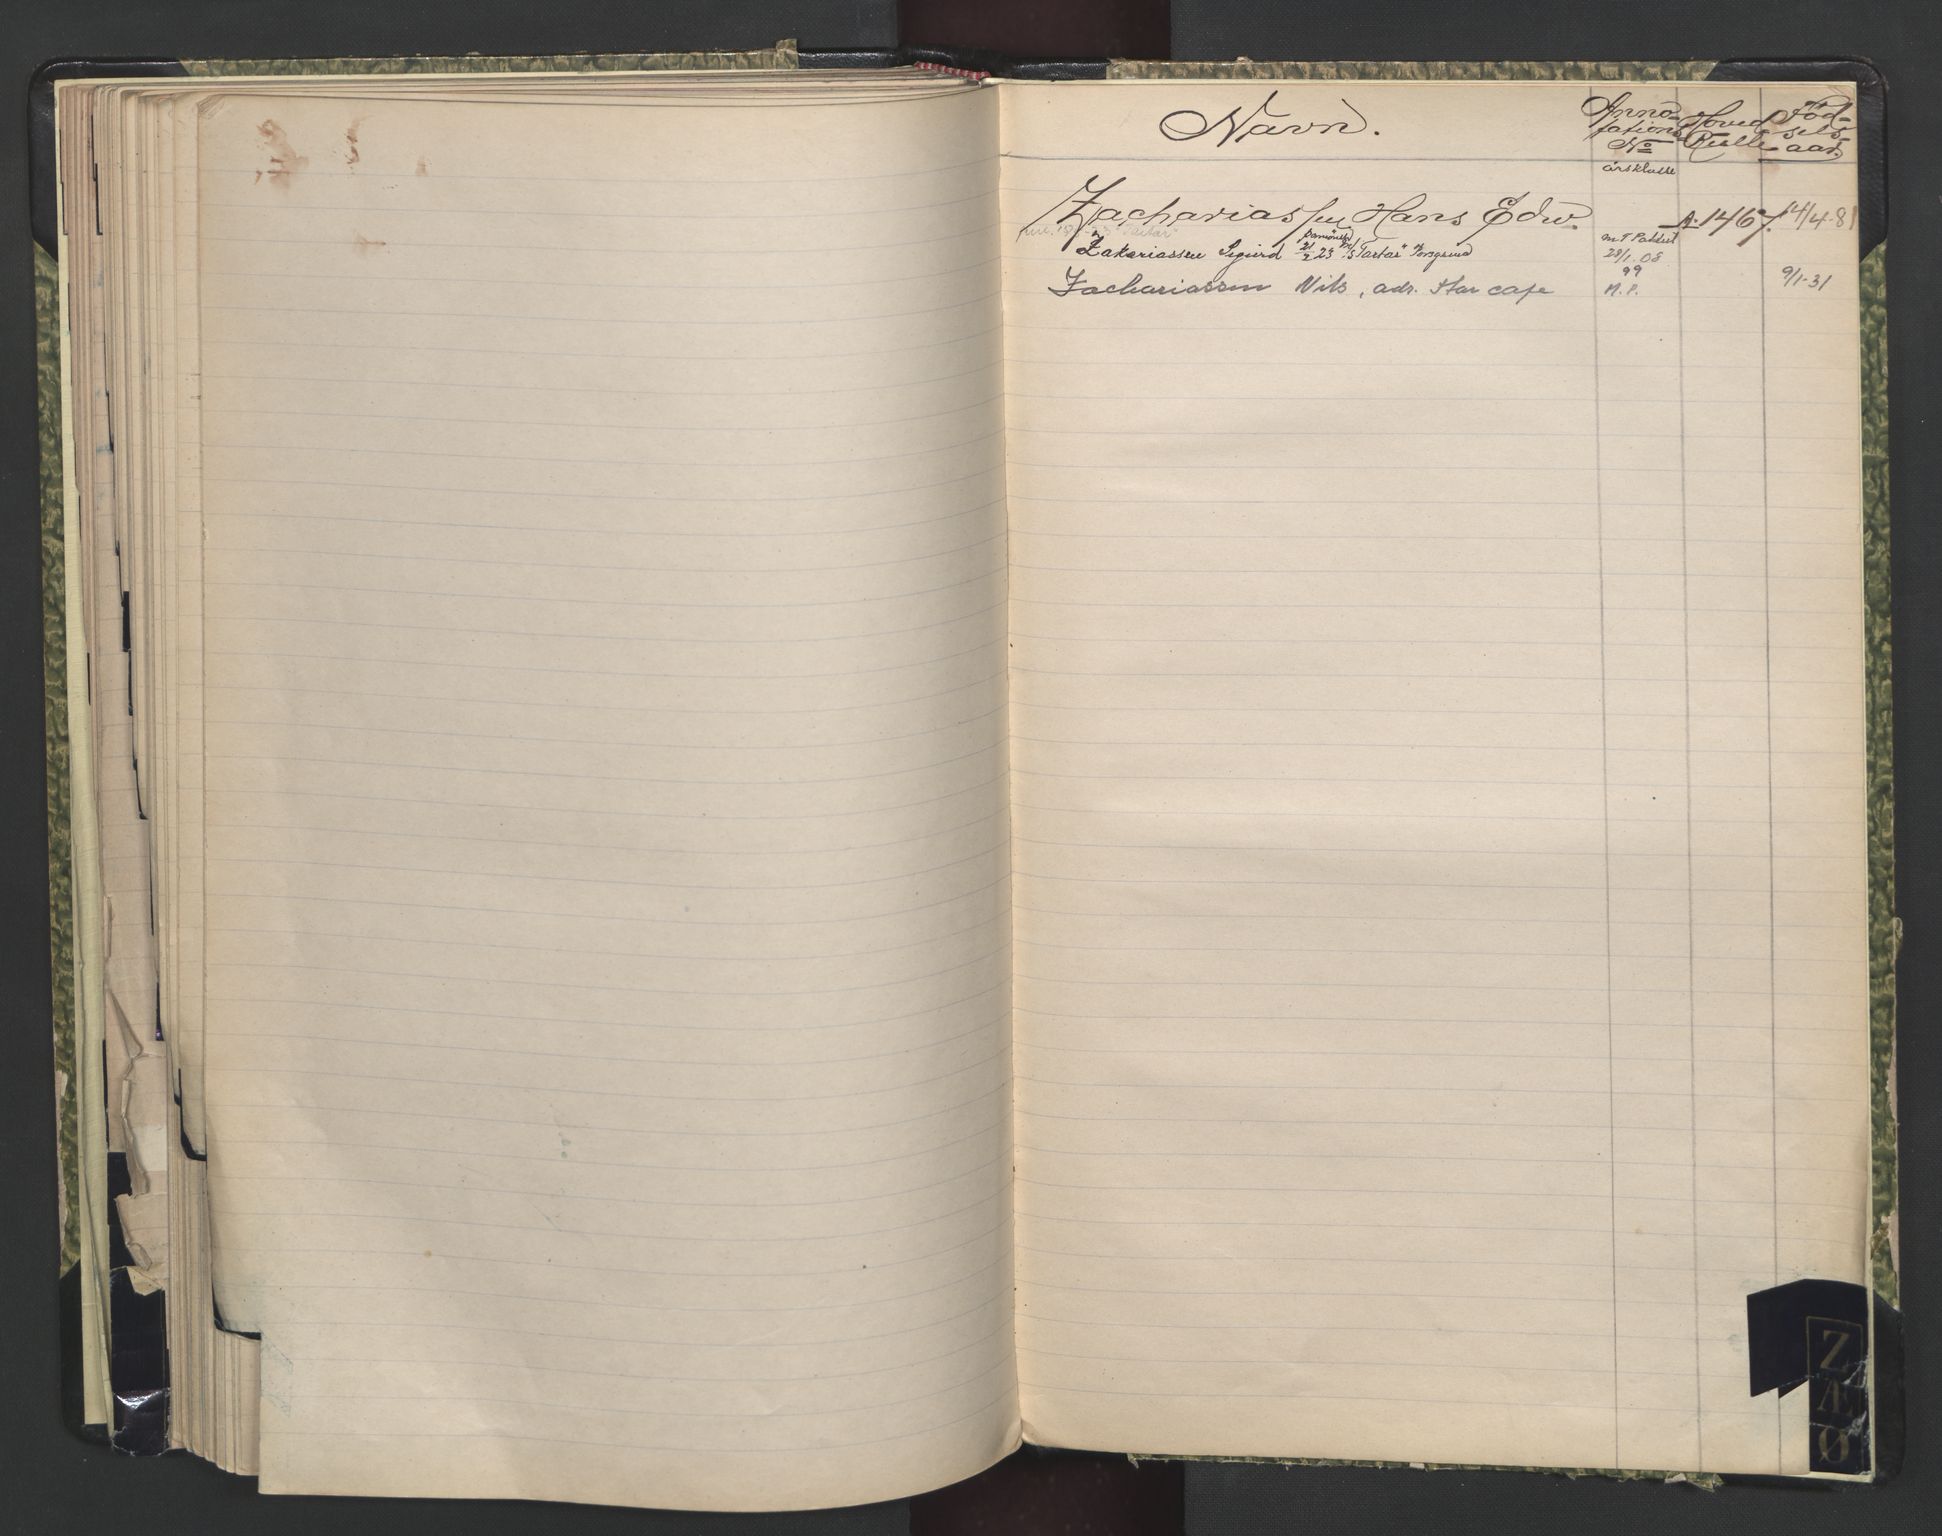 Navn.
Anno-
tations
No
årsklasse
Hoved
Rulle
Föd-
sels-
aar.
Zachariassen Hans Edw. A. 1467. 14/4-81
"Tartar"
Zakariassen Sigurd 21/2 23 M/S "Tartar" Porsgrund
28/1.08
99
Zachariassen Nils, adr. Star cafe M.P. 9/1-31
Z
Æ
Ø